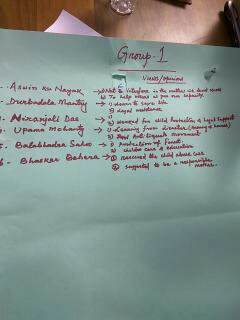 Group-1
Views/opinions
- Aswin ku Nayak → a) Not to interfere in the matters we dont know
b) To help others as per our capacity
- Durbadala Mantry → 1) Learn to save life
2) Legal assistance
- Niranjali Das → 1)
2) Worked for child Protection & legal support
- Upama Mohanty → 1) Learning from disaster
2) Anti liquor movement
5- Balabhadra Sahoo → 1) Protection of Forest.
2) children care & education
6- Bhaskar Behera → ① rescued the child abuse case
② supported to be a responsible mother.